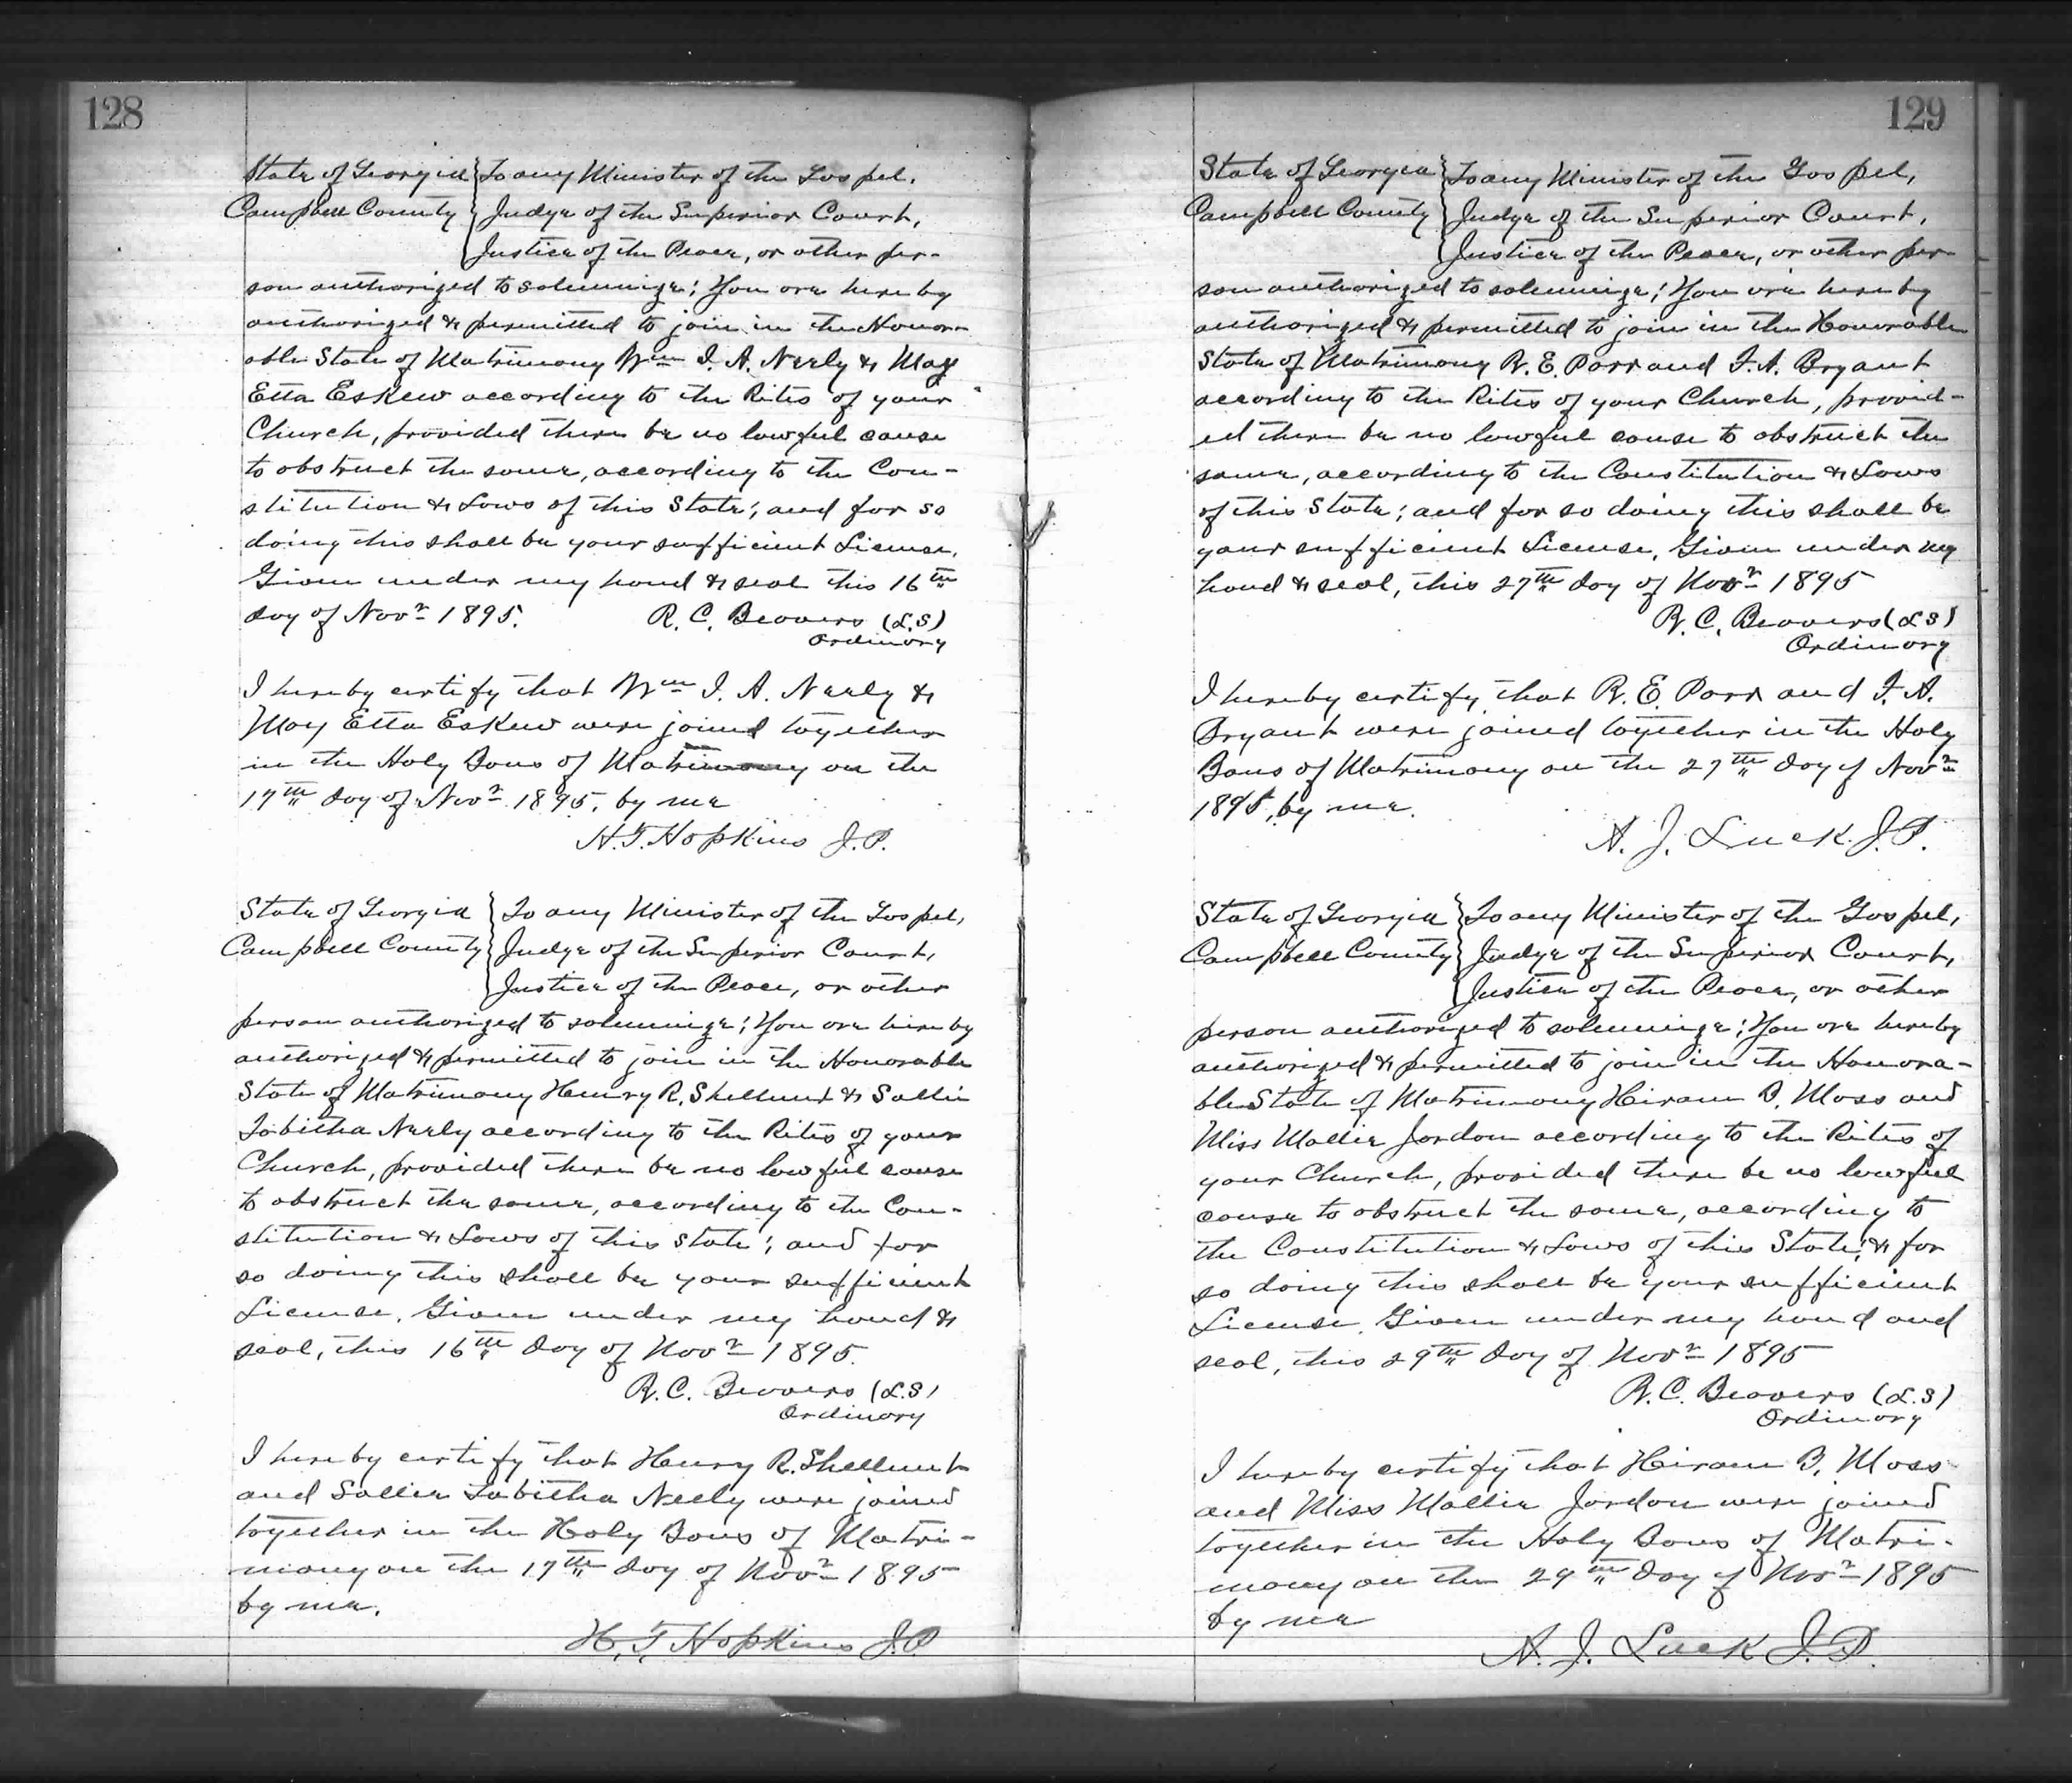 128
State of Georgia } To any Minister of the Gospel,
Campbell County } Judge of the Superior Court,
Justice of the Peace, or other per-
son authorized to solemnize; You are hereby
authorized & permitted to join in the Honor-
able State of Matrimony Wm I. A. Neely & May
Etta Eskew according to the Rites of your
Church, provided there be no lawful cause
to obstruct the same, according to the Con-
stitution & Laws of this State; and for so
doing this shall be your sufficient License.
Given under my hand & seal this 16th
day of Novr 1895. R. C. Beavers (L.S)
Ordinary
I hereby certify that Wm I. A. Neely &
May Etta Eskew were joined together
in the Holy Bans of Matrimony on the
17th day of Novr 1895, by me
H. T. Hopkins J.P.
State of Georgia } To any Minister of the Gospel,
Campbell County } Judge of the Superior Court,
Justice of the Peace, or other
person authorized to solemnize; You are hereby
authorized & permitted to join in the Honorable
State of Matrimony Henry R. Shellnut & Sallie
Tabitha Neely according to the Rites of your
Church, provided there be no lawful cause
to obstruct the same, according to the Con-
stitution & Laws of this State; and for
so doing this shall be your sufficient
License. Given under my hand &
seal, this 16th day of Novr 1895.
R. C. Beavers (L.S)
Ordinary
I hereby certify that Henry R. Shellnut
and Sallie Tabitha Neely were joined
together in the Holy Bans of Matri-
mony on the 17th day of Novr 1895
by me.
H. T. Hopkins J.P.
129
State of Georgia } To any Minister of the Gospel,
Campbell County } Judge of the Superior Court,
Justice of the Peace, or other per-
son authorized to solemnize; You are hereby
authorized & permitted to join in the Honorable
State of Matrimony R. E. Parr and I. A. Bryant
according to the Rites of your Church, provid-
ed there be no lawful cause to obstruct the
same, according to the Constitution & Laws
of this State; and for so doing this shall be
your sufficient License. Given under my
hand & seal, this 27th day of Novr 1895
R. C. Beavers (L S)
Ordinary
I hereby certify that R. E. Parr and I. A.
Bryant were joined together in the Holy
Bans of Matrimony on the 27th day of Novr
1895, by me.
A. J. Luck J.P.
State of Georgia } To any Minister of the Gospel,
Campbell County } Judge of the Superior Court,
Justice of the Peace, or other
person authorized to solemnize; You are hereby
authorized & permitted to join in the Honora-
ble State of Matrimony Hiram B. Moss and
Miss Mallie Jordon according to the Rites of
your Church, provided there be no lawful
cause to obstruct the same, according to
the Constitution & Laws of this State; & for
so doing this shall be your sufficient
License. Given under my hand and
seal, this 29th day of Novr 1895
R. C. Beavers (L.S)
Ordinary
I hereby certify that Hiram B. Moss
and Miss Mallie Jordon were joined
together in the Holy Bans of Matri-
mony on the 29th day of Novr 1895
by me
A. J. Luck J.P.